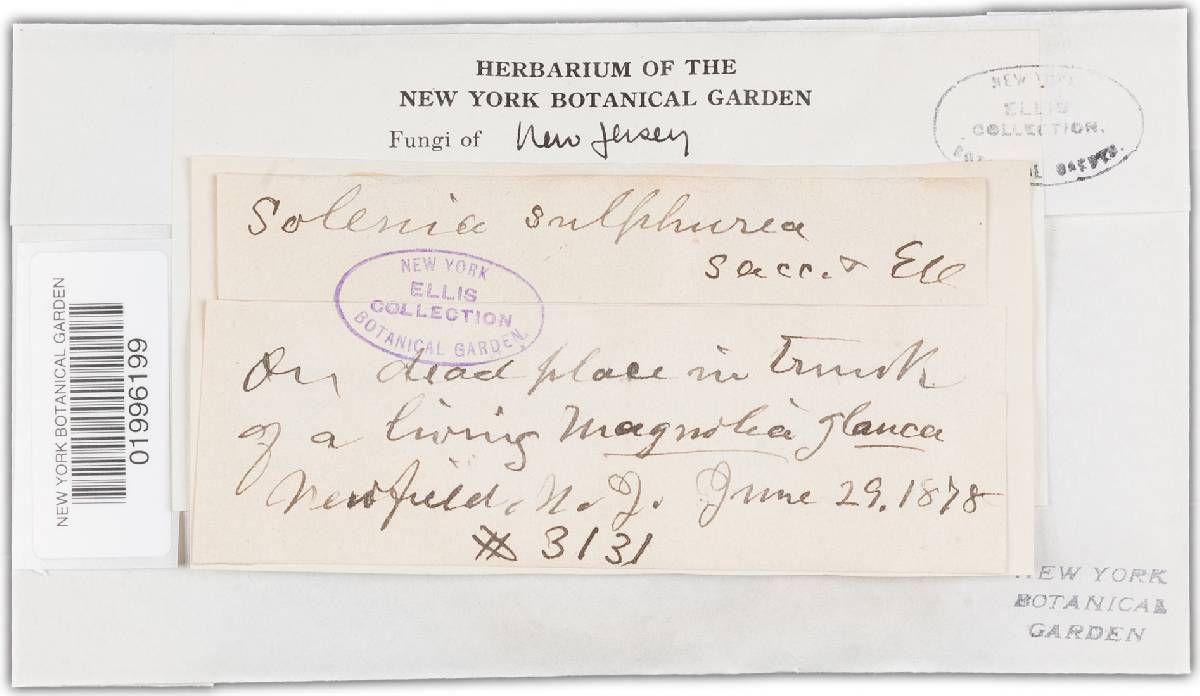 HERBARIUM OF THE
NEW YORK BOTANICAL GARDEN
Fungi of New Jersey
NEW YORK
ELLIS
COLLECTION.
BOTANICAL GARDEN.
Solenia sulphurea
Sacc. & Ell
NEW YORK
ELLIS
COLLECTION
BOTANICAL GARDEN.
On dead place in trunk
of a living Magnolia glauca
Newfield, N. J. June 29, 1878
# 3131
NEW YORK BOTANICAL GARDEN
01996199
NEW YORK
BOTANICAL
GARDEN